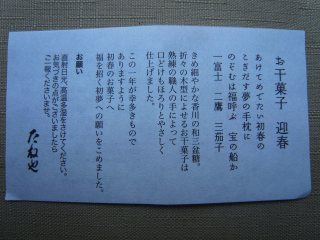 お干菓子 迎春
あけてめでたい初春の
とぎだす夢の手枕に
のぞむは福呼ぶ 宝の船か
一富士 二鷹 三茄子
きめ細やかな香川の和三盆糖。
折々の木型によせるお干菓子は
熟練の職人の手によって
口どけもほろりとやさしく
仕上げました。
この一年が幸多きもので
ありますように
初春のお菓子へ
福を招く初夢への願いをこめました。
お願い
直射日光、高温多湿をさけてください。
お気づきの点がございましたら
ご一報くださいませ。
たねや